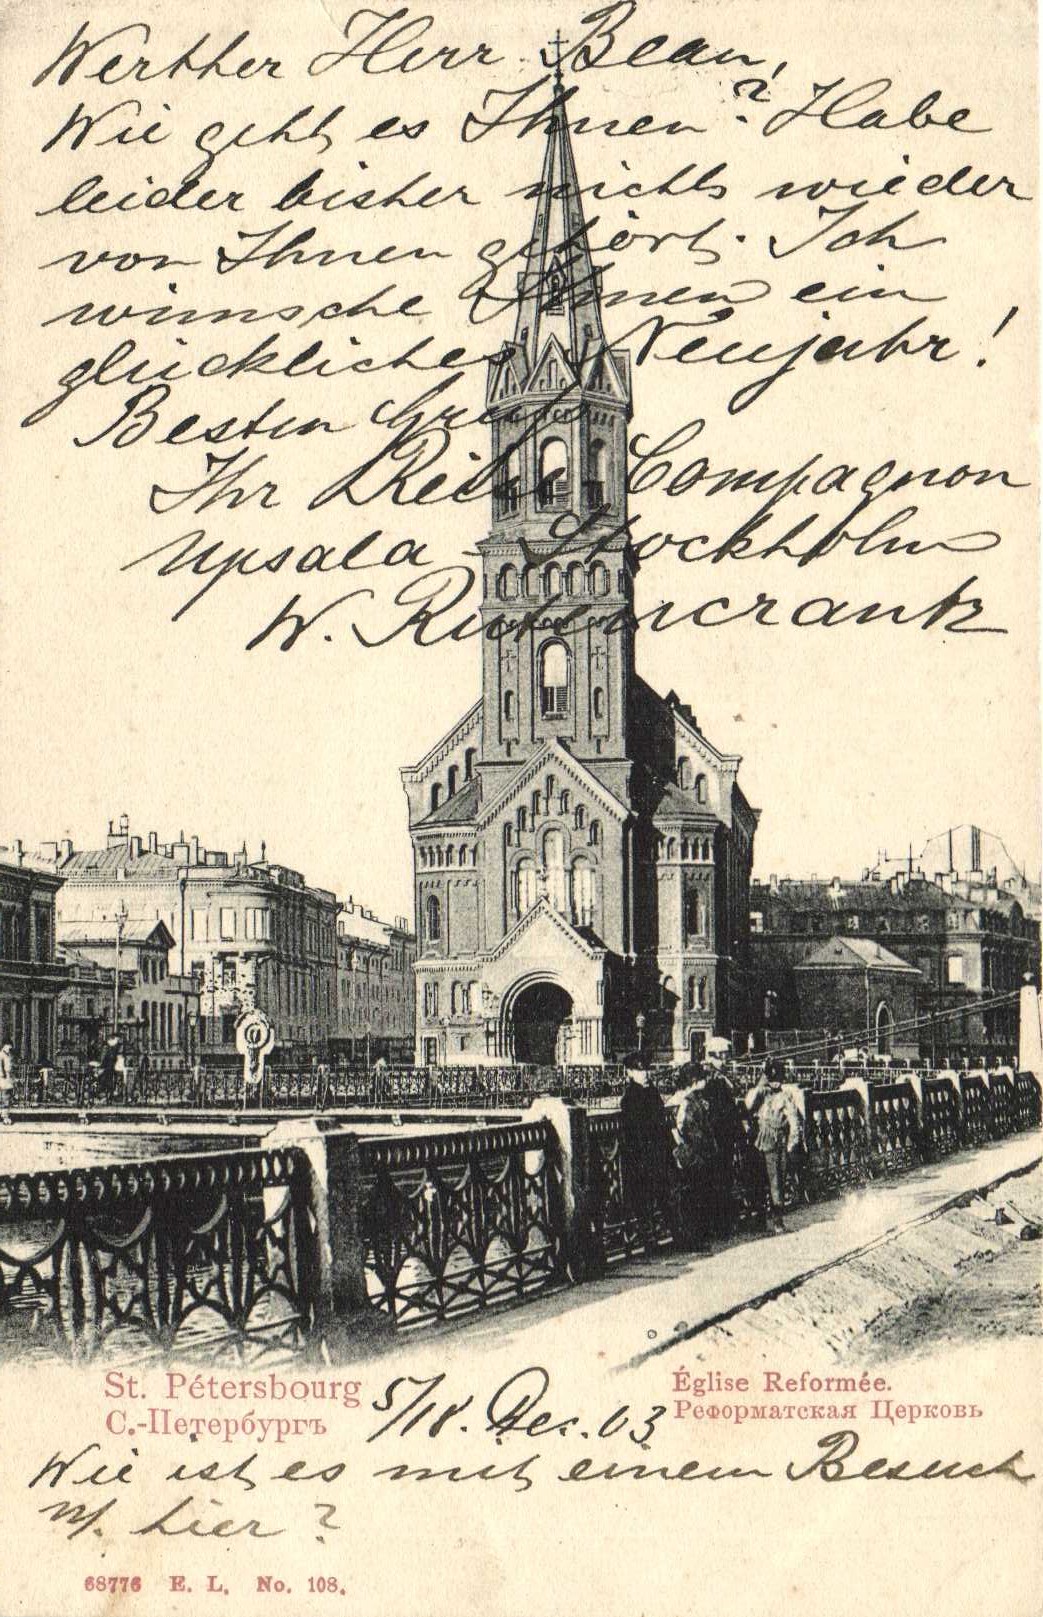 Werther Herr Bean,
Wie geht es Ihnen? Habe
leider bisher nichts wieder
von Ihnen gehört. Ich
wünsche Ihnen ein
glückliches Neujahr!
Besten Gruß
Ihr Reise-Compagnon
Upsala - Stockholm
W.
St. Pétersbourg
С.-Петербургъ
5/18. Dec. 03
Église Reformée.
Реформатская Церковь
Wie ist es mit einem Besuch
n/. hier?
68776 E. L. No. 108.